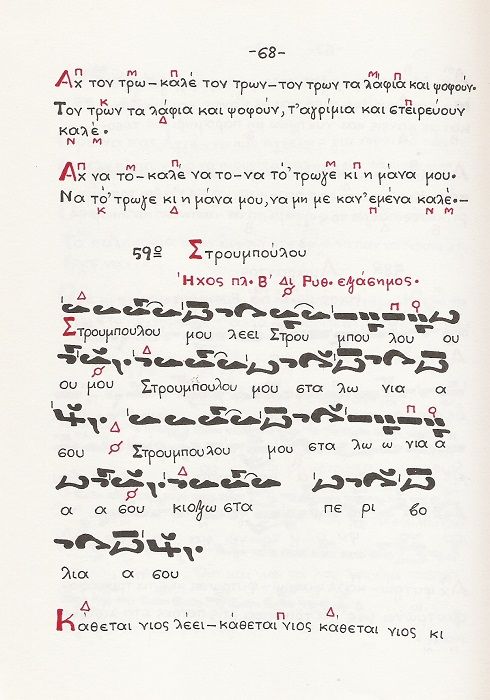 -68-
Αχ τον τρω-καλέ τον τρων-τον τρων τα λάφια και ψοφούν.
Τον τρων τα λάφια και ψοφούν, τ'αγρίμια και στειρεύουν
καλέ.
Αχ να το-καλέ να το-να τό'τρωγε κι η μάνα μου.
Να τό'τρωγε κι η μάνα μου, να μη με καν' εμένα καλέ.-
59ο Στρουμπούλου
Ήχος πλ. Β' Δι Ρυθ. εξάσημος.
Στρουμπουλου μου λεει Στρου μπου λου ου
ου μου Στρουμπουλου μου στα λω για α
σου Στρουμπουλου μου στα λω ω για α
α α σου κιοξω στα πε ρι βο
λια α σου
Κάθεται γιος λέει-κάθεται γιος κάθεται γιος κι